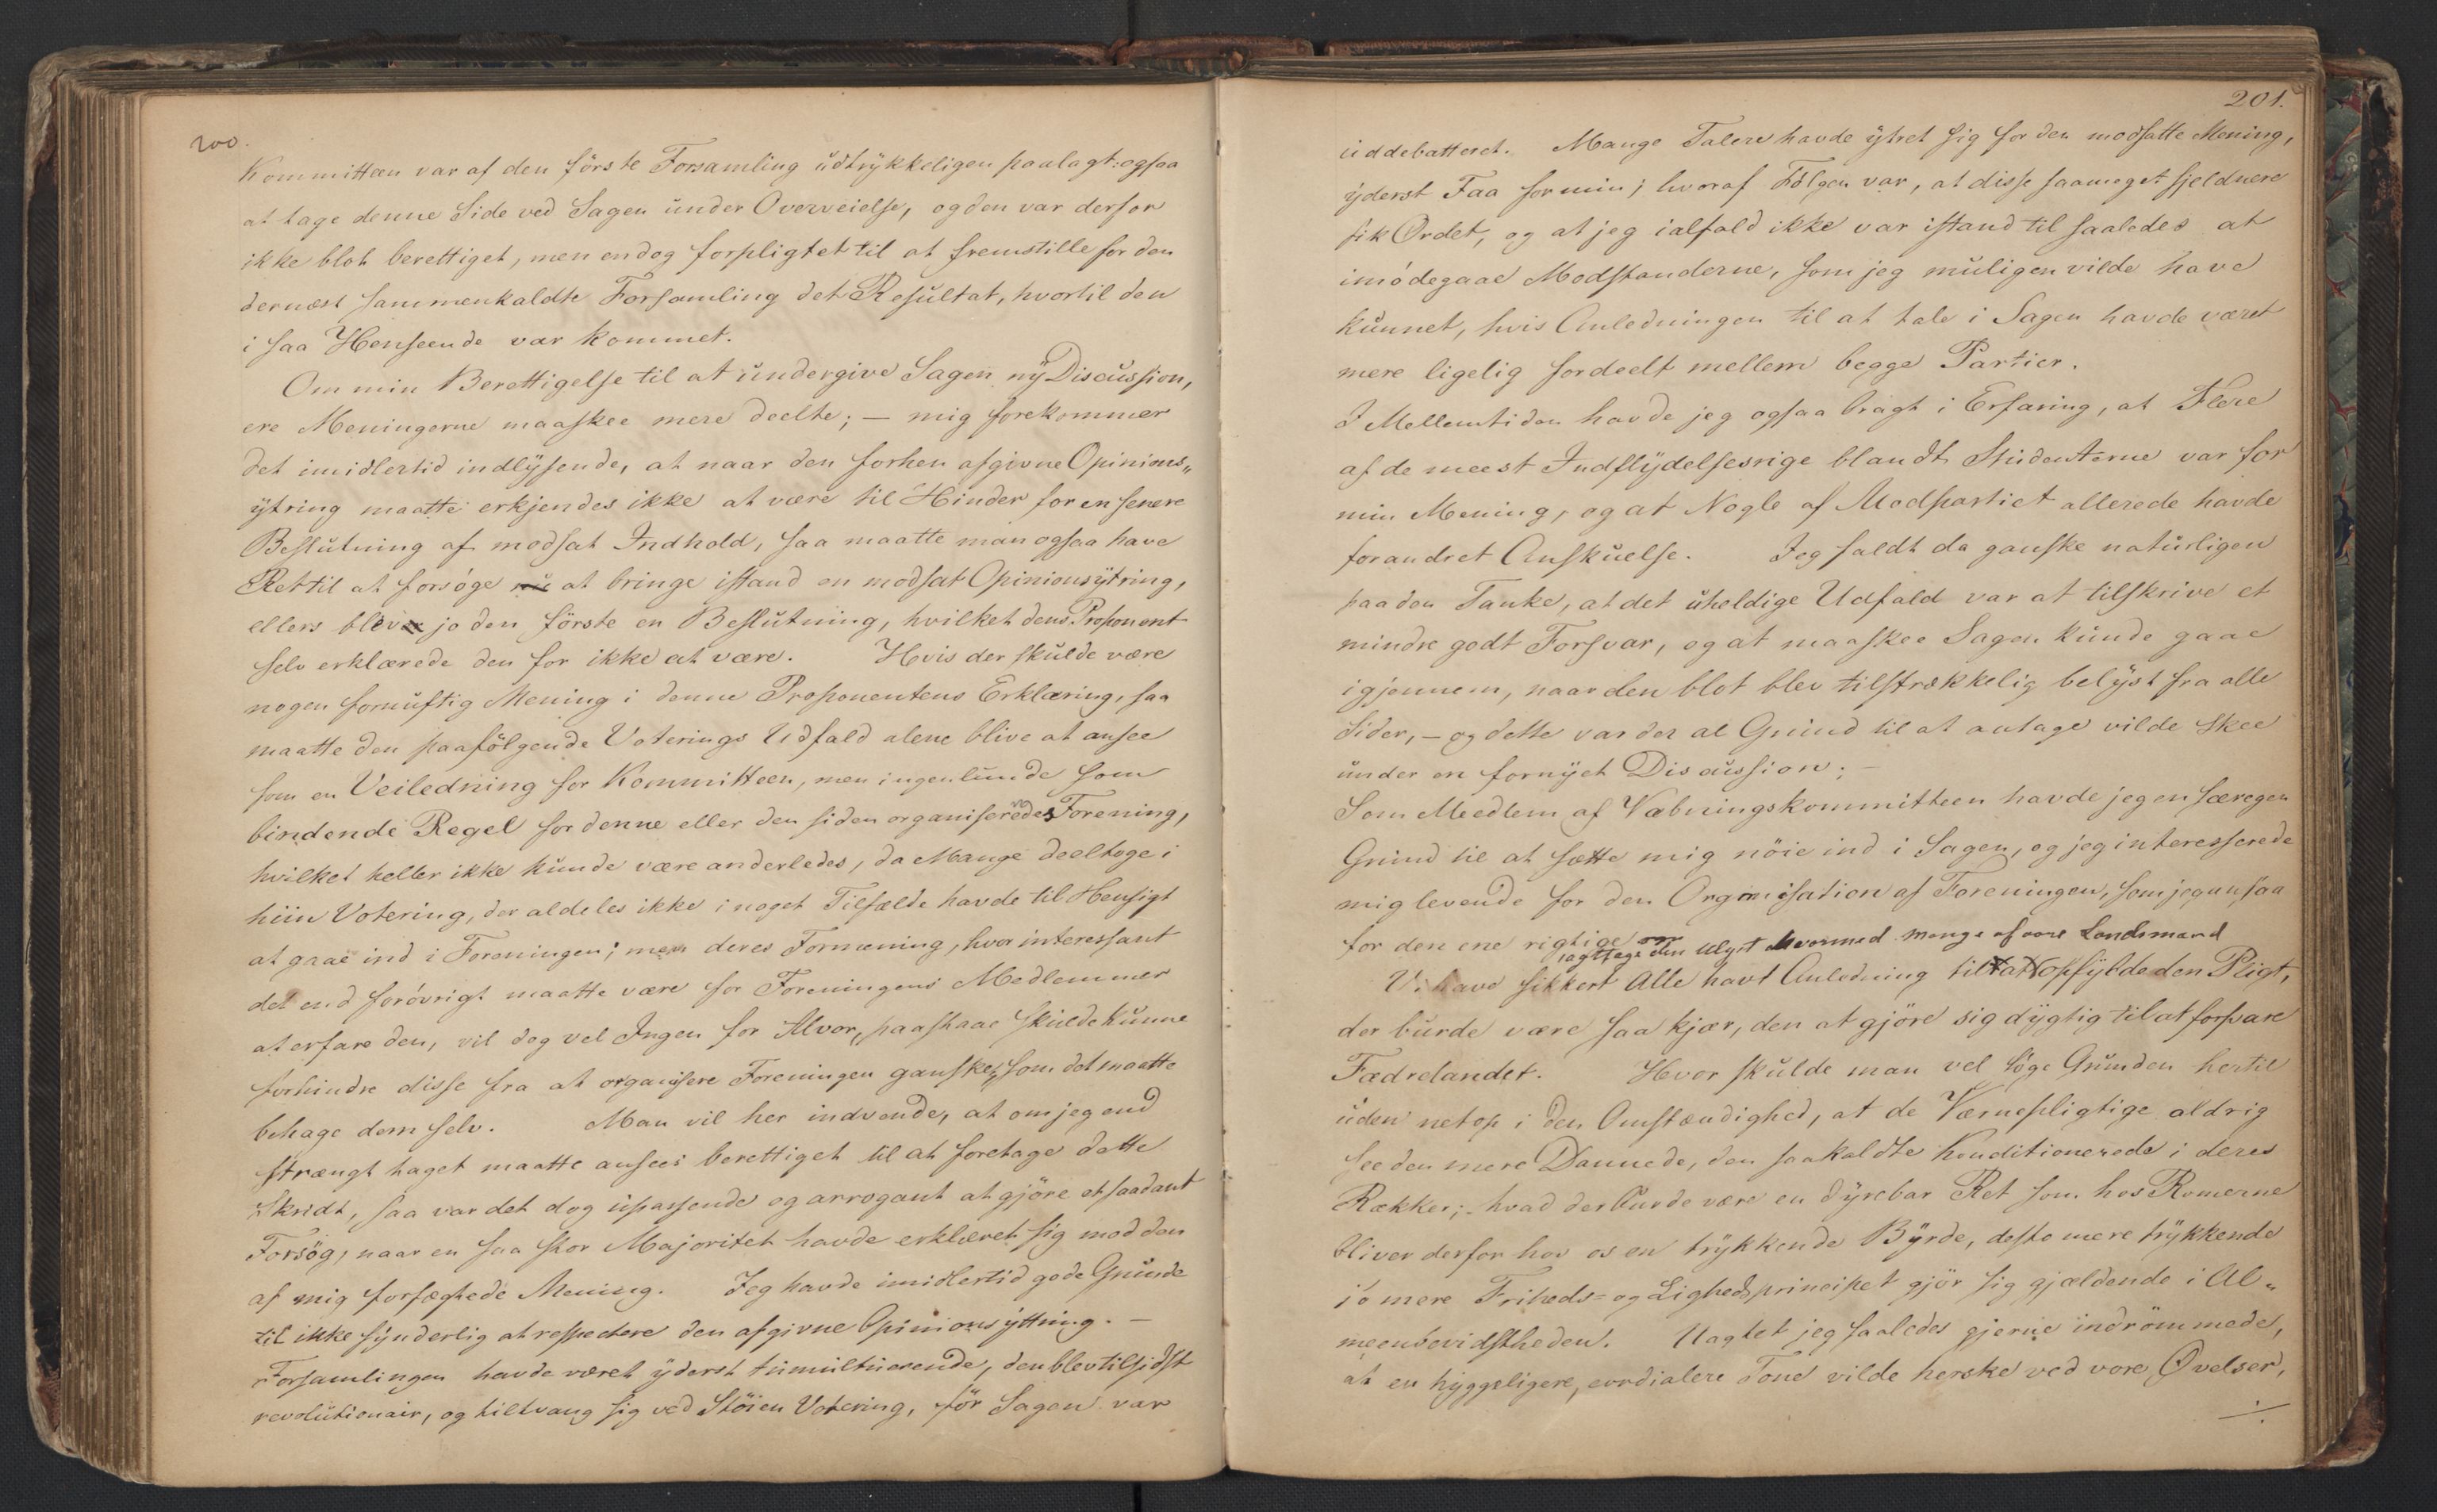 200.
Kommitteen var af den förste Forsamling udtrykkeligen paalagt: ogsaa
at tage denne Side ved Sagen under Overveielse, og den var derfor
ikke blot berettiget, men endog forpligtet til at fremstille for den
dernæst sammenkaldte Forsamling det Resultat, hvortil den
i saa Henseende var kommet.
Om min Berettigelse til at undergive Sagen ny Discussion,
ere Meningerne maaskee mere deelte; — mig forekommer
det imidlertid indlysende, at naar den forhen afgivne Opinions„
ytring maatte erkjendes ikke at være til Hinder for en senere
Beslutning af modsat Indhold, saa maatte man ogsaa have
Ret til at forsøge nu at bringe istand en modsat Opinionsytring,
ellers blev jo den förste en Beslutning, hvilket dens Proponent
selv erklærede den for ikke at være. Hvis der skulde være
nogen fornuftig Mening i denne Proponentens Erklæring, saa
maatte den paafölgende Voterings Udfald alene blive at ansee
som en Veiledning for Kommitteen, men ingenlunde som
bindende Regel for denne eller den siden organiserede Forening,
hvilket heller ikke kunde være anderledes, da Mange deeltoge i
hiin Votering, der aldeles ikke i noget Tilfælde havde til Hensigt
at gaae ind i Foreningen; men deres Formening, hvor interessant
det end forövrigt maatte være for Foreningens Medlemmer
at erfare den, vil dog vel Ingen for Alvor paastaae skulde kunne
forhindre disse fra at organisere Foreningen ganske, som det maatte
behage dem selv. Man vil her indvende, at om jeg end
strængt taget maatte ansees berettiget til at foretage dette
Skridt, saa var det dog upassende og arrogant at gjöre et saadant
Forsög, naar en saa stor Majoritet havde erklæret sig mod den
af mig forfægtede Mening. Jeg havde imidlertid gode Grunde
til ikke synderlig at respectere den afgivne Opinionsyttring. —
Forsamlingen havde været yderst tumultuerende, den blev tilsidst
revolutionair, og tiltvang sig ved Stöien Votering, för Sagen var
201.
uddebatteret. Mange Talere havde ytret sig for den modsatte Mening,
yderst Faa for min; hvoraf Fölgen var, at disse saameget sjeldnere
fik Ordet, og at jeg ialfald ikke var istand til saaledes at
imödegaae Modstanderne, som jeg muligen vilde have
kunnet, hvis Anledningen til at tale i Sagen havde været
mere ligelig fordeelt mellem begge Partier.
I Mellemtiden havde jeg ogsaa bragt i Erfaring, at Flere
af de meest Indflydelsesrige blandt Studenterne var for
min Mening, og at Nogle af Modpartiet allerede havde
forandret Anskuelse. Jeg faldt da ganske naturligen
paa den Tanke, at det uheldige Udfald var at tilskrive et
mindre godt Forsvar, og at maaskee Sagen kunde gaae
igjennem, naar den blot blev tilstrækkelig belyst fra alle
Sider, — og dette var der al Grund til at antage vilde skee
under en fornyet Discussion; —
Som Meedlem af Væbningskommitteen havde jeg en særegen
Grund til at sætte mig nöie ind i Sagen, og jeg interesserede
mig levende for den Organisation af Foreningen, som jeg ansaa
for den ene rigtige
iagttage den Ulyst hvormed mange af vore Landsmænd
Vi have sikkert Alle havt Anledning til at opfylde den Pligt,
der burde være saa kjær, den at gjöre sig dygtig til at forsvare
Fædrelandet. Hvor skulde man vel söge Grunden hertil
uden netop i den Omstændighed, at de Værnepligtige aldrig
see den mere Dannede, den saakaldte Konditionerede i deres
Rækker; - hvad der burde være en dyrebar Ret som hos Romerne
bliver derfor hos os en trykkende Byrde, desto mere trykkende
jo mere Friheds- og Lighedsprincipet gjör sig gjældende i Al„
meenbevidstheden. Uagtet jeg saaledes gjerne indrömmede,
at en hyggeligere, cordialere Tone vilde herske ved vore Øvelser,